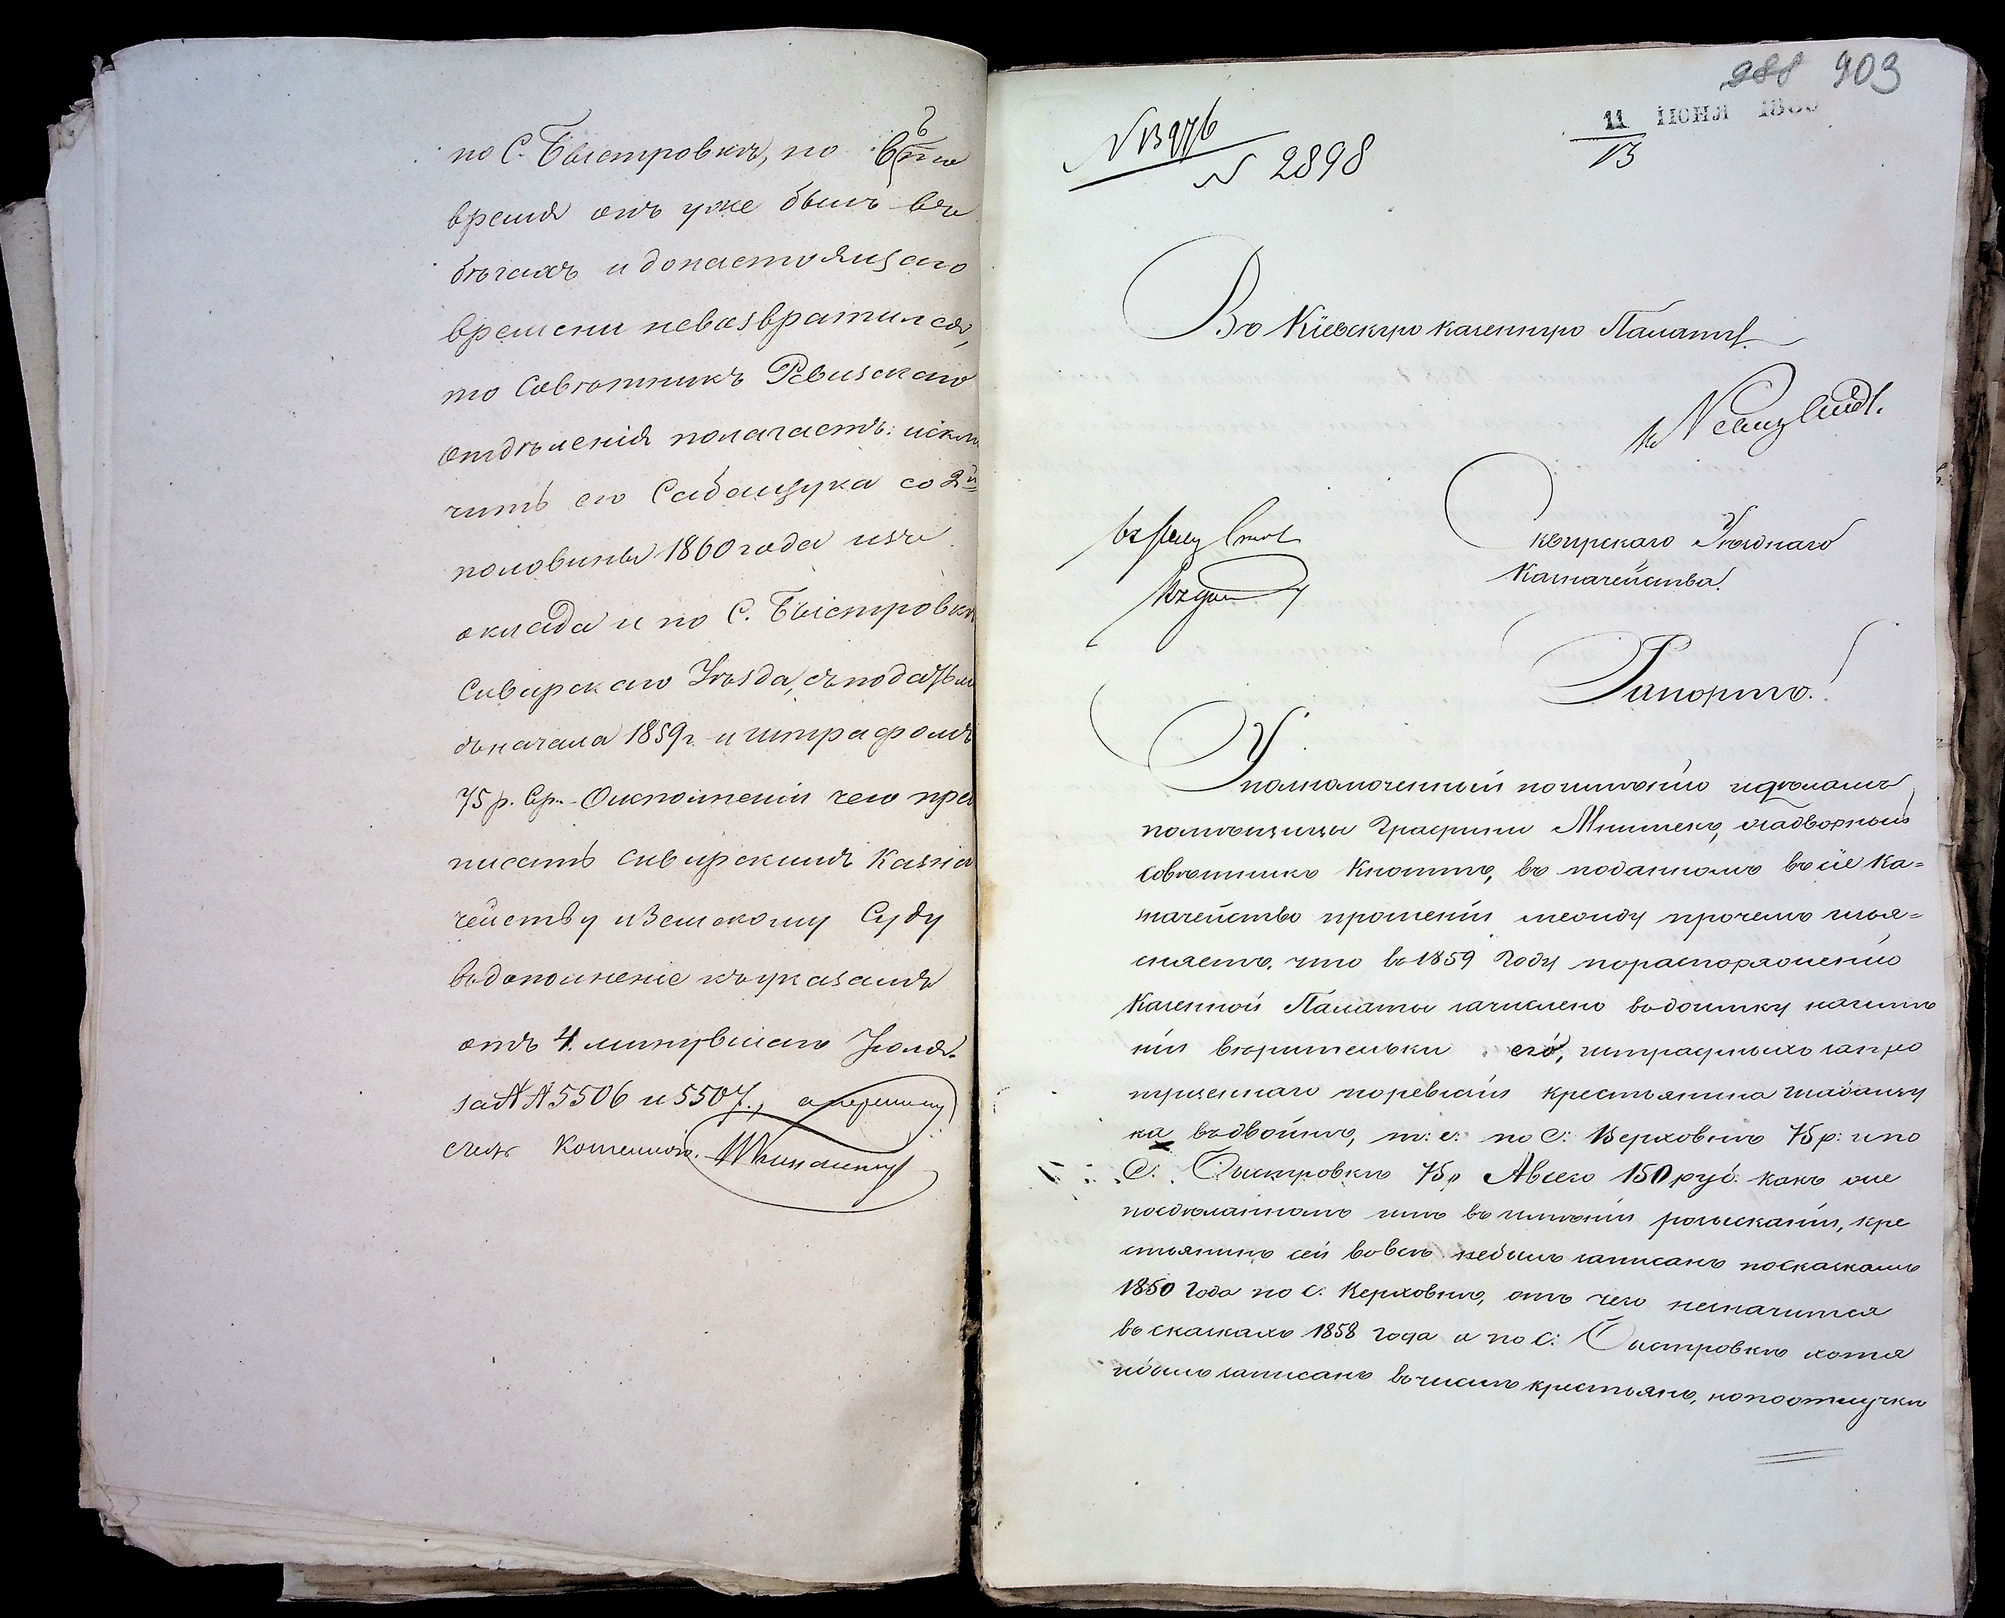 по С. Быстровкѣ, но въ то
время онъ уже былъ въ
бѣгахъ и донастоящаго
времени невозвратился,
то Совѣтникъ Ревизскаго
отдѣленія полагаетъ: исклю
чить его Сабащука со 2й
половины 1860 года изъ
оклада и по С. Быстровкѣ
Сквирскаго Уѣзда, съ податьми
съначала 1859 г. и штрафомъ
75 р. Ср. О исполненіи чего пред
писать Сквирскимъ Казна
чейству и Земскому Суду
въдополненіе къуказамъ
отъ 4. минувшаго Іюля
за NN 5506 и 5507.,
988 903
11 ИЮНЯ
13
N 13976
N 2898
Въ Кіевскую казенную Палату.
Сквирскаго Уѣзднаго
Казначейства.
Рапортъ.
Уполномоченный поимѣнію идѣламъ
помѣщицы Графини Мнишекъ, надворный
совѣтникъ Кноттъ, въ поданномъ въ сіе Ка=
значейство прошеніи между прочемъ изъя=
сняетъ, что въ 1859 году пораспоряженію
Казенной Палаты зачислено въдоимку наимѣ
ніи вѣрительки его, штрафныхъ запро
пущеннаго поревизіи крестьянина Шабащу
ка вдвойнѣ, т: е: по С: Верховнѣ 75 р: и по
С: Быстровкѣ 75 р Авсего 150 руб: какъ же
посдѣланномъ имъ въ имѣніи розысканіи, кре
стьянинъ сей вовсѣ небылъ записанъ посказкамъ
1850 года по С: Верховнѣ, отъ чего незначится
въ сказкахъ 1858 года а по С: Быстровкѣ хотя
ибылъ записанъ вчислѣ крестьянъ, нопоотлучки